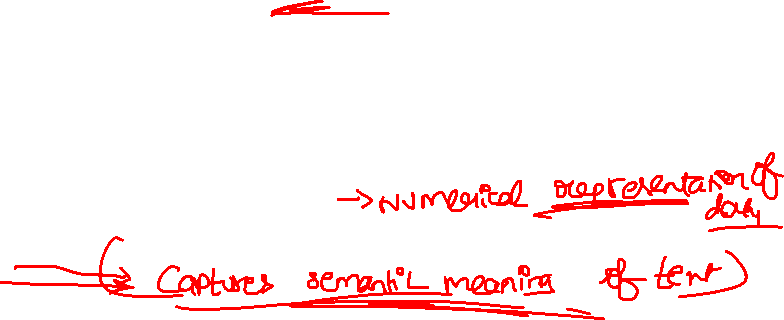 → Numerical representation of
data
(Captures semantic meaning of text)